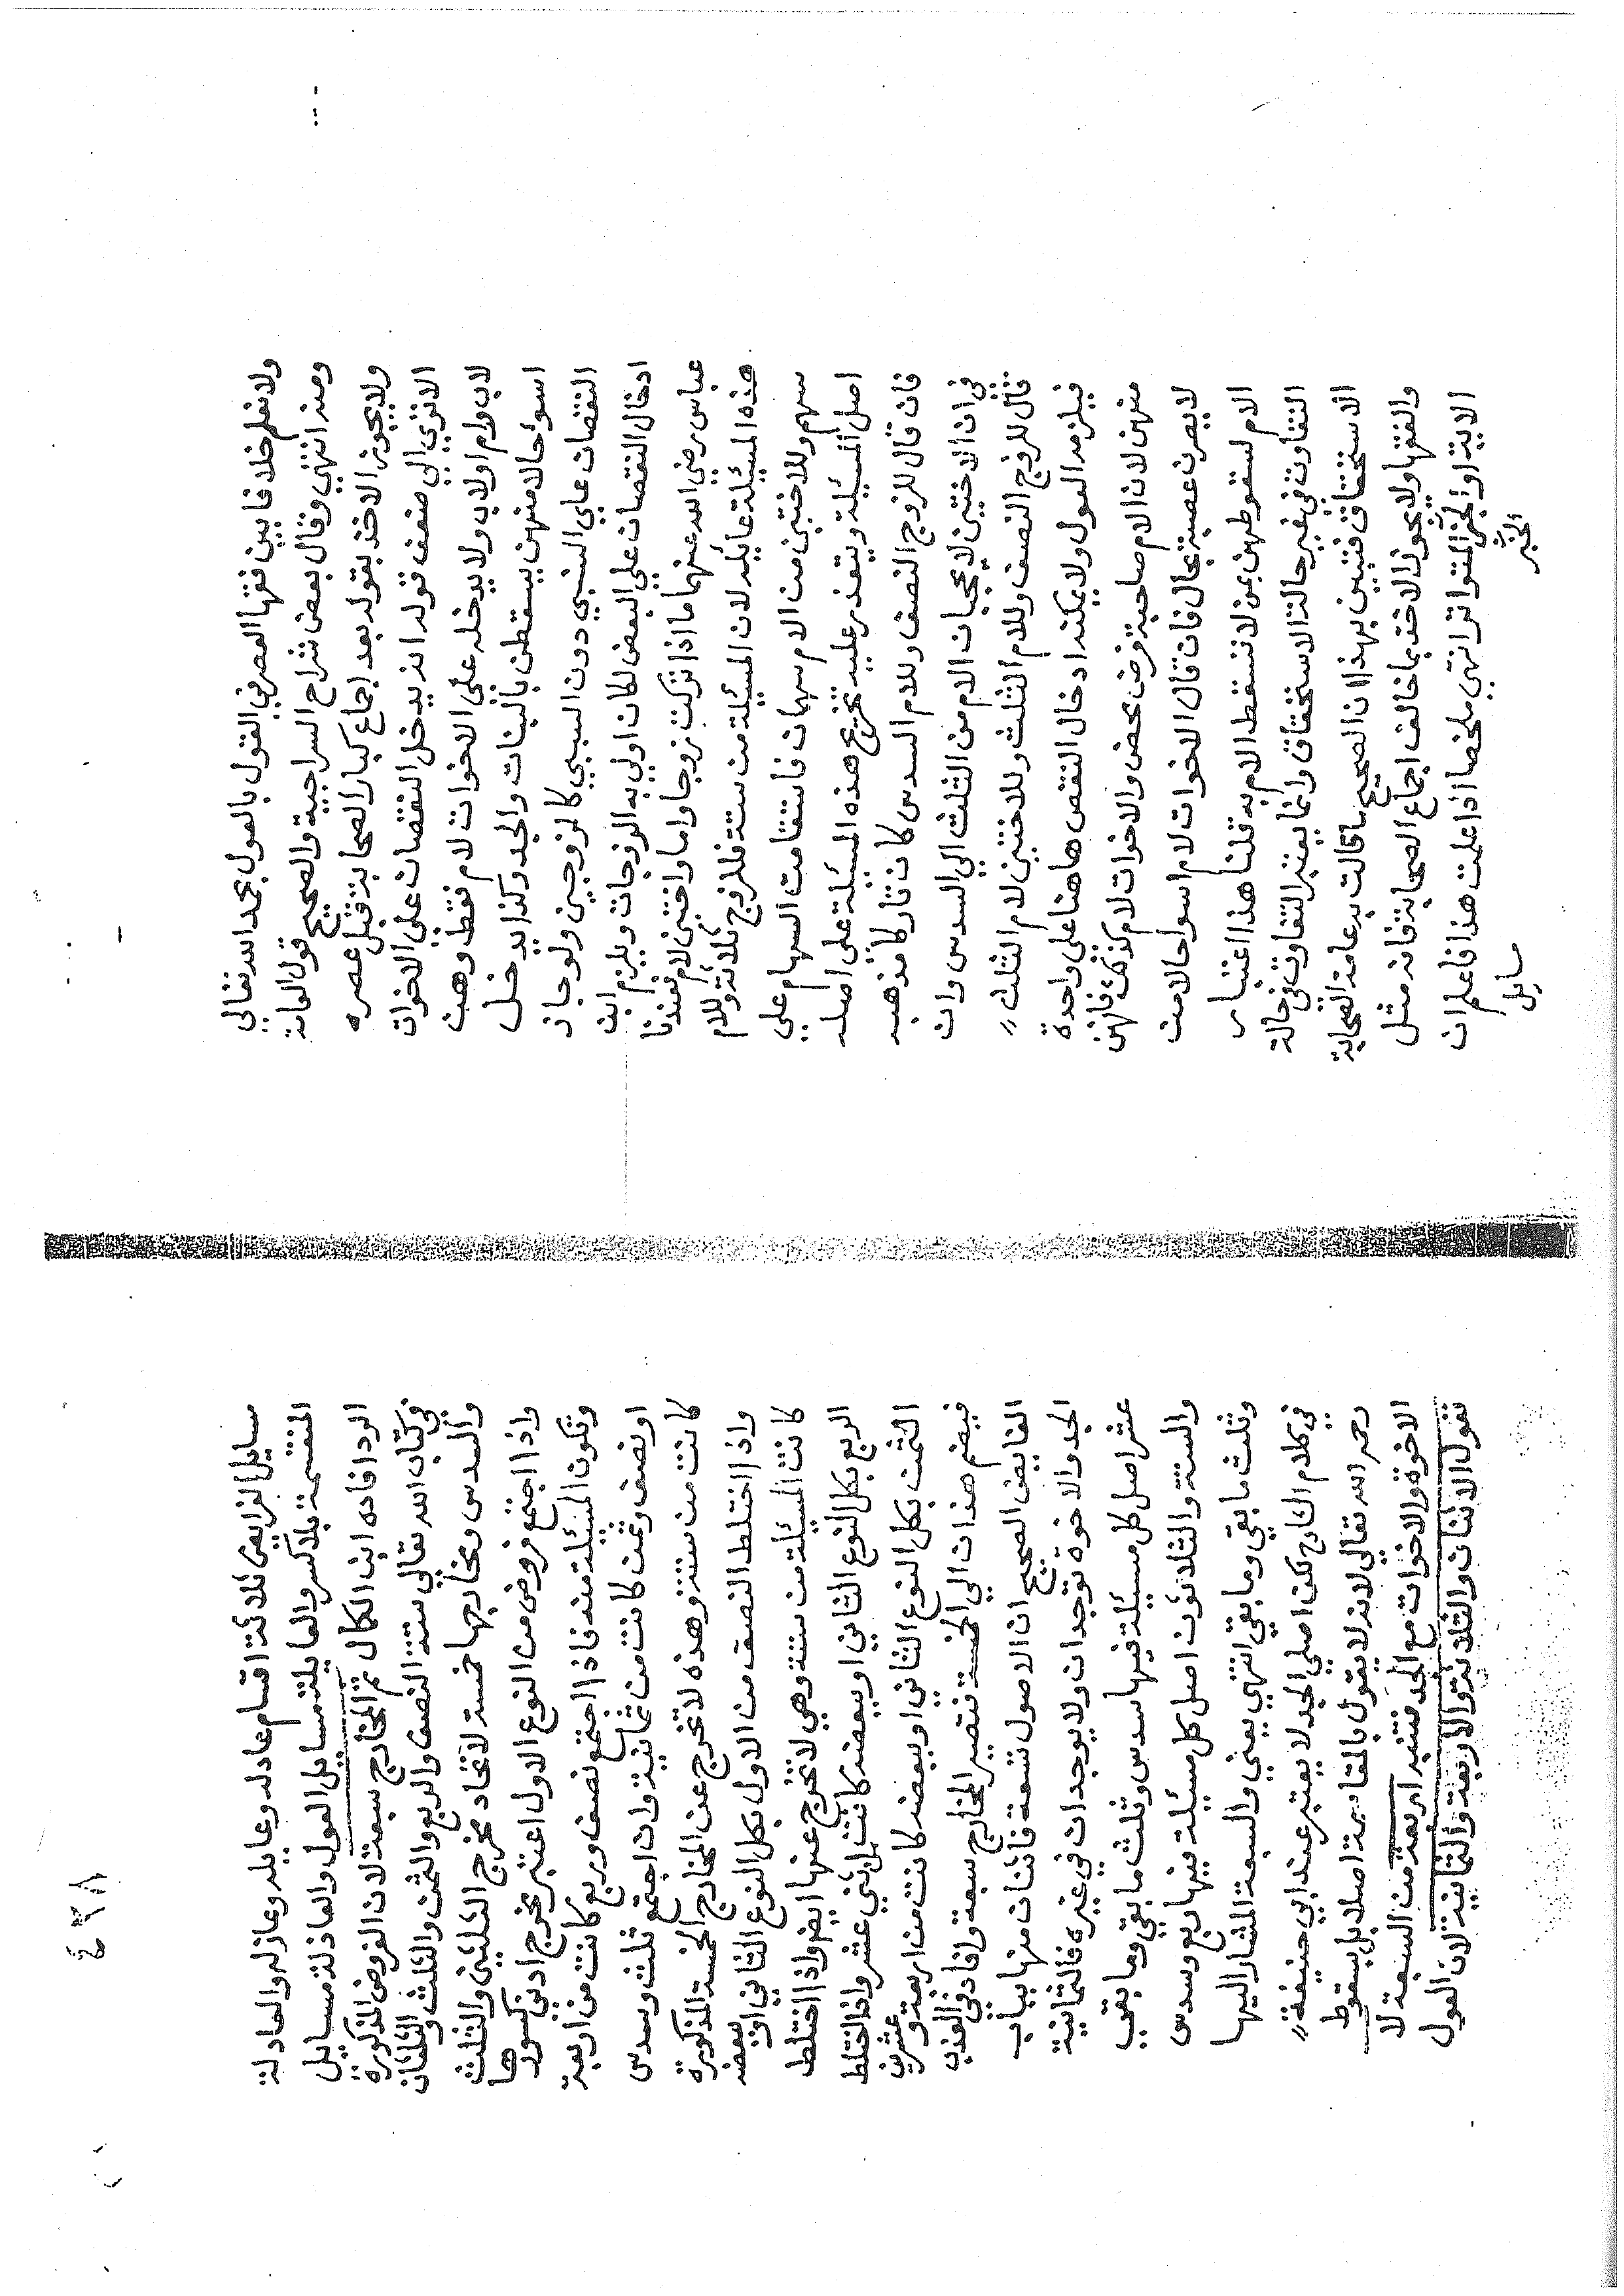 ولا نعلم خلافا بين فقها العصر في القول بالعول بحمد الله تعالي
ومنه انتهي وقال بعض شراح السراجية والصحيح قول العامة
ولا يجوز الاخذ بقوله بعد اجماع كبار الصحابة قبل عصره
الا تري الي ضعف قوله انه يدخل النقصان علي الاخوات
لاب وام او لاب ولا يدخله علي الاخوات لام فقط وهن
اسوا حالا منهن يسقطن بالبنات والجد وكذا يدخل
النقصان علي النسبي دون السببي كالزوجين ولو جاز
ادخال النقصان علي البعض لكان اولي به الزوجات ويلزم ابن
عباس رضي الله عنهما ما اذا تركت زوجا واما واختين لام فعندنا
هذه المسئلة عايله لان المسئلة من ستة فللزوج ثلاثة وللام
سهم وللاختين من الام سهمان فاستقامت السهام علي
اصل المسئلة ويتعذر عليه تخريج هذه المسئلة علي اصله
فان قال للزوج النصف وللام السدس كان تاركا مذهبه
في ان الاختين لا يحجبان الام من الثلث الي السدس وان
قال للزوج النصف وللام الثلث وللاختين لام الثلث
فيلزمه العول ولا يمكنه ادخال النقص هاهنا علي واحدة
منهن لان الام صاحبة فرض محض والاخوات لام كذلك فانهن
لا يصرن عصبة بحال فان قال الاخوات لام اسوا حالا من
الام لسقوطهن بمن لا تسقط الام به قلنا هذا اعتبار
التفاوت في غير حالة الاستحقاق وانما يعتبر التفاوت في حالة
الاستحقاق فتبين بهذا ان الصحيح ما قالت به عامة الصحابة
والفقها ولا يجوز الاخذ بما خالف اجماع الصحابة فانه مثل
الاية او الخبر المتواتر انتهي ملخصا اذا علمت هذا فاعلم ان
الخبر
مسايل
٤٣٨
مسايل الفرايض ثلاثة اقسام عادله وعايله وعازله والعادلة
المنقسمة بلا كسر والعايلة مسايل العول والعاذلة مسايل
الرد افاده ابن الكمال ثم المخارج سبعة لان الفروض المذكورة
في كتاب الله تعالي ستة النصف والربع والثمن والثلث والثلثان
والسدس ومخارجها خمسة لاتحاد مخرج الثلثين والثلث
واذا اجتمع فروض من النوع الاول اعتبر مخرج ادني كسور ها
وتكون المسئلة منه فاذا اجتمع نصف وربع كانت من اربعة
او نصف وثمن كانت من ثمانية وان اجتمع ثلث وسدس
كانت من ستة وهذه لا تخرج عن المخارج الخمسة المذكورة
واذا اختلط النصف من الاول بكل النوع الثاني او ببعضه
كانت المسئلة من ستة وهي لا تخرج عنها ايضا واذا اختلط
الربع بكل النوع الثاني او ببعضه كانت من اثني عشر واذا اختلط
الثمن بكل النوع الثاني او ببعضه كانت من اربعة وعشرين
فيضم هذان الي الخمسة تصير المخارج سبعة وافاد في العذب
الفايض الصحيح ان الاصول تسعة فاثنان منها بباب
الجد والاخوة توجدان ولا يوجدان في غيره فالثمانية
عشر اصل كل مسئلة فيها سدس وثلث ما بقي وما بقي
والستة والثلاثون اصل كل مسئلة فيها ربع وسدس
وثلث ما بقي وما بقي انتهي يعني والسبعة المشار اليها
في كلام الشارح لكن اصلي الجد لا يعتبر عند ابي حنيفة
رحمه الله تعالي لانه لا يقول بالمقاسمة اصلا بل بسقوط
الاخوة والاخوات مع الجد فتنبه اربعة من السبعة لا
تعول الاثنان والثلاثة والاربعة والثمانية لان العول